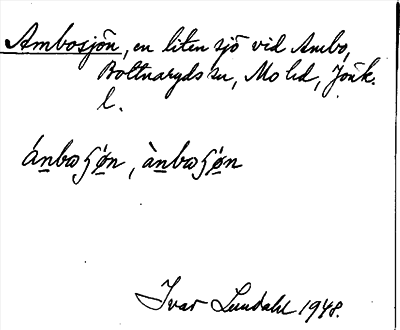 Ambosjön, en liten sjö vid Ambo,
Bottnaryds sn, Mo hd, Jönk.
l.
ánbaʃǿn, ànbaʃǿn
Ivar Lundahl 1948.